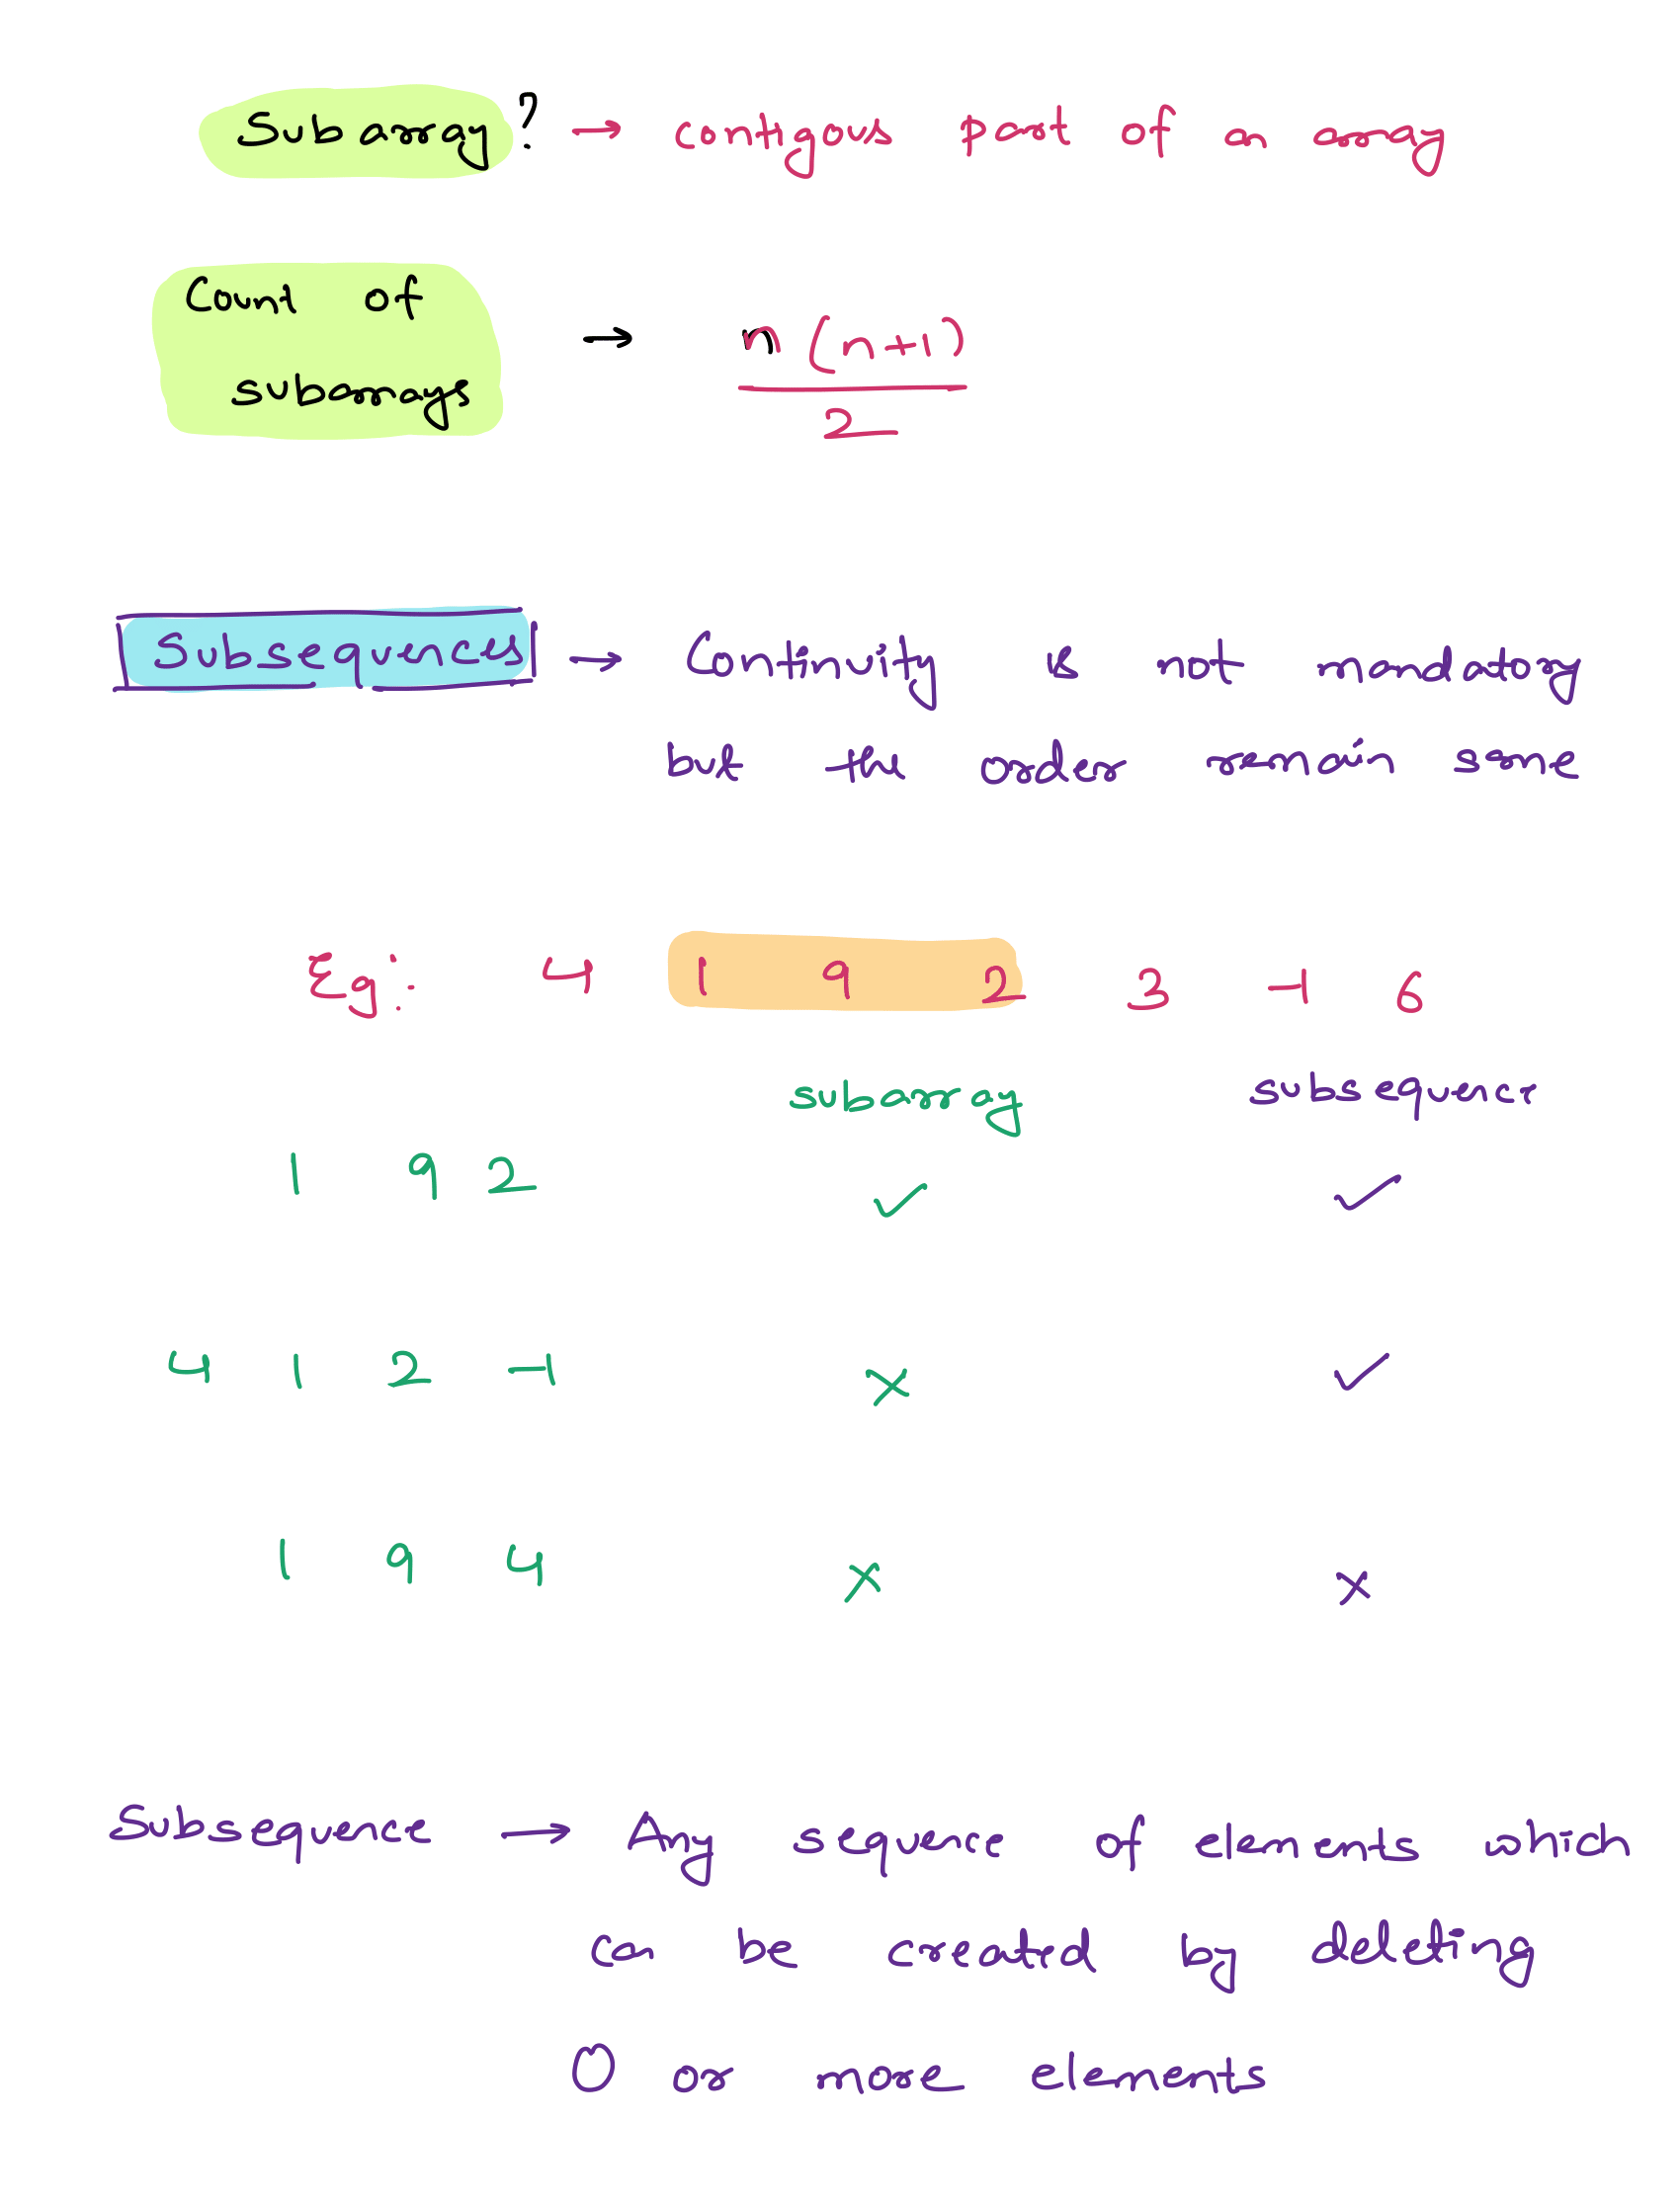 Subarray? → contigous part of an array
Count of
subarrays → n(n+1)
2
Subsequences → Continuity is not mandatory
but the order remain same
Eg:- 4 1 9 2 3 -1 6
subarray subsequence
1 9 2 ✓ ✓
4 1 2 -1 × ✓
1 9 4 × ×
Subsequence → Any sequence of elements which
can be created by deleting
0 or more elements